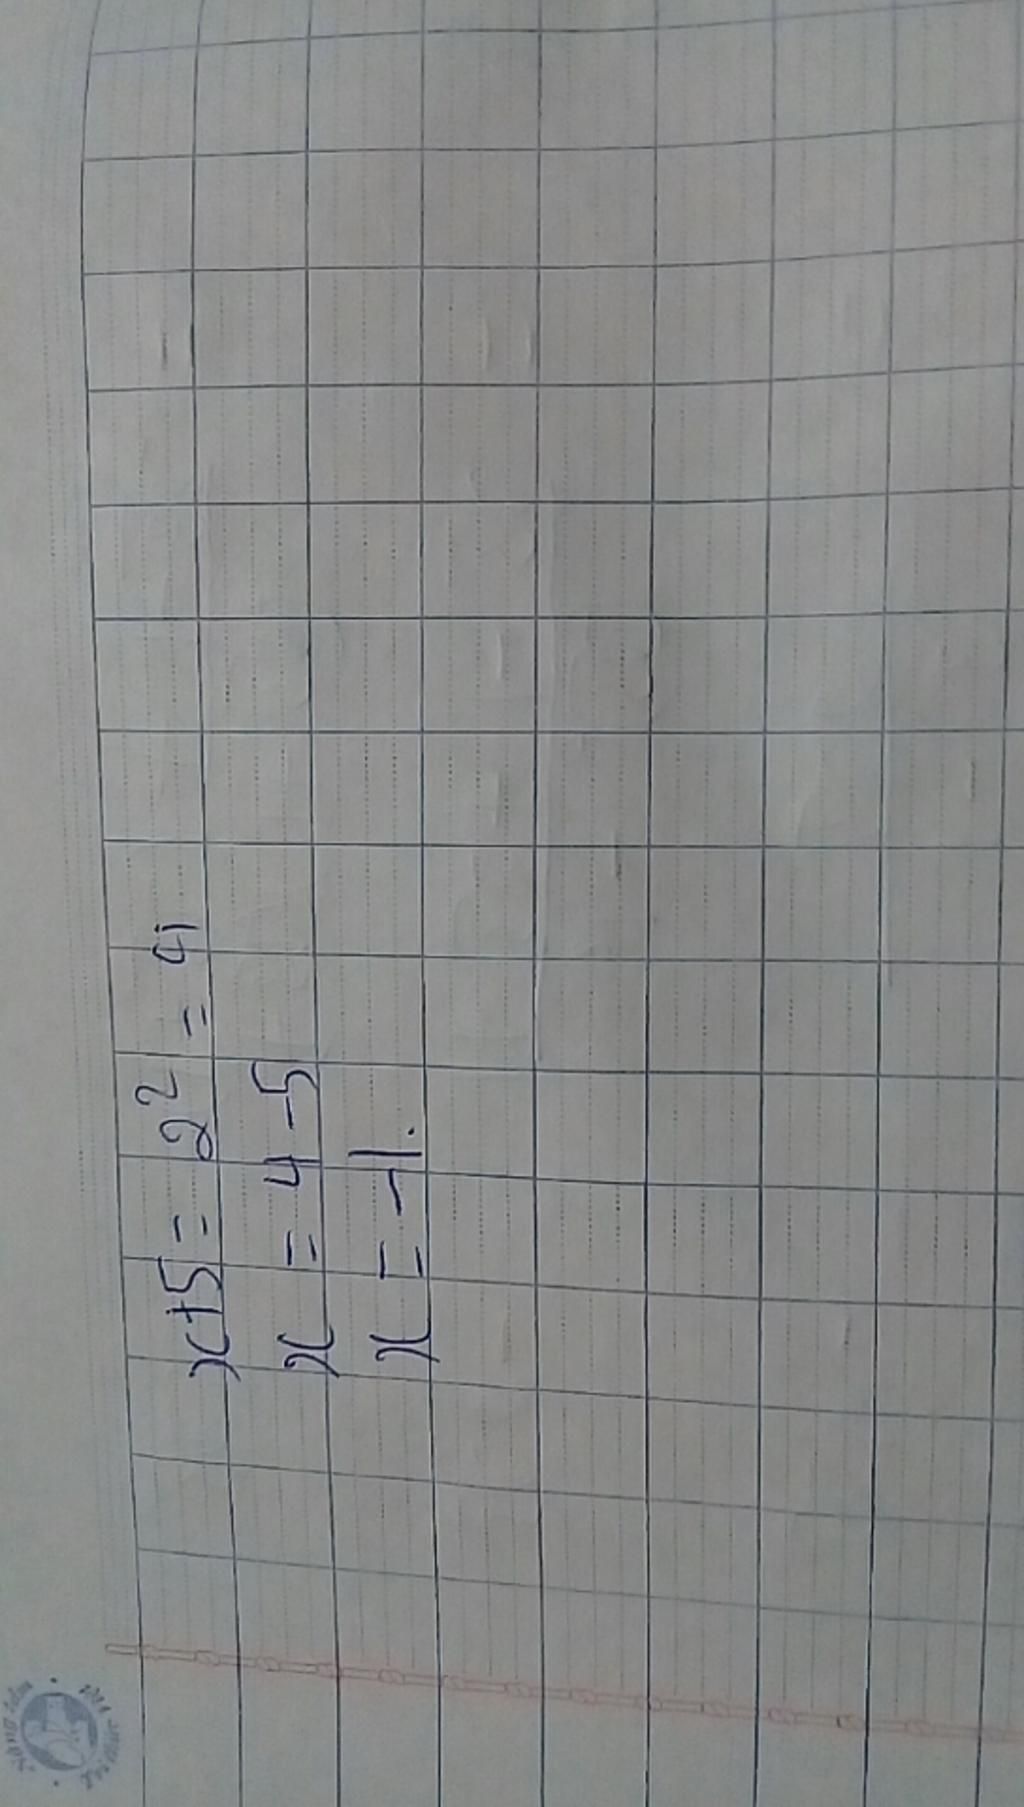 x+5 = 2² = 4
x = 4-5
x = -1.